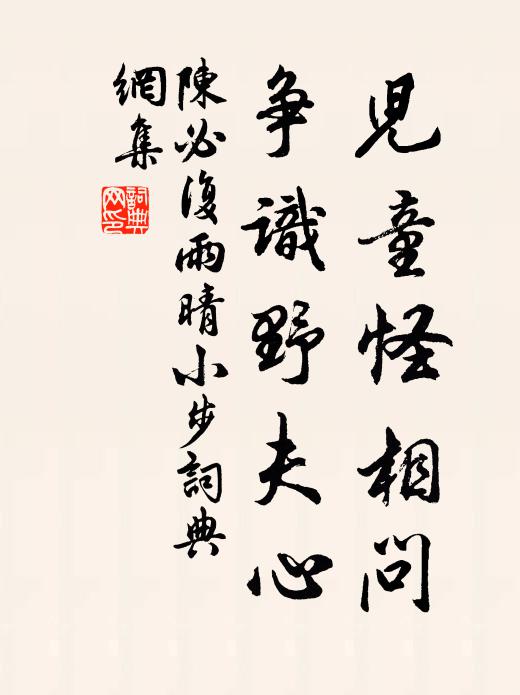 児童怪相問
争識野夫心
陳必復雨晴小步詞典
網集
詞典
网印